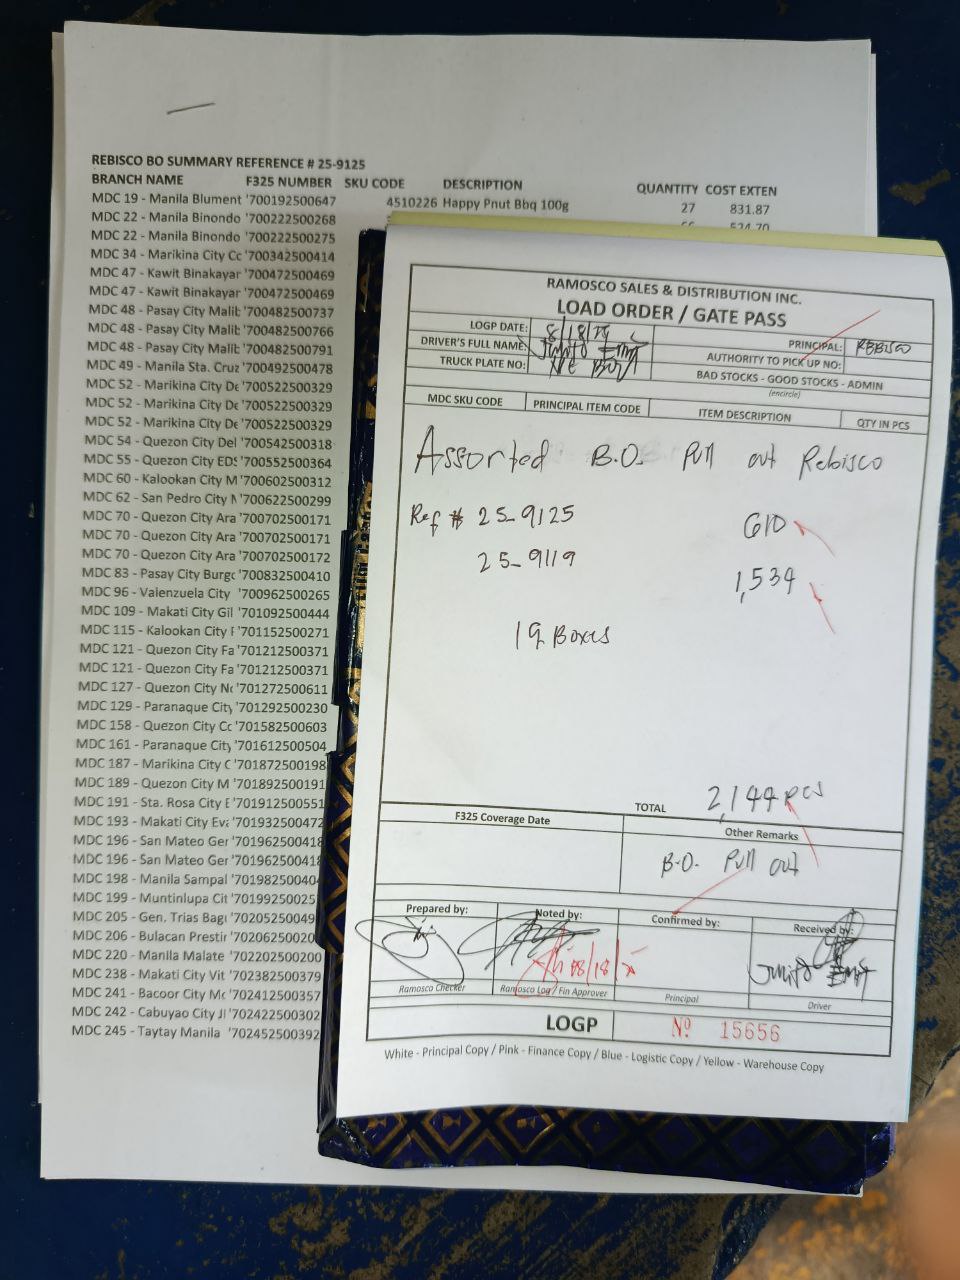 REBISCO BO SUMMARY REFERENCE # 25-9125
BRANCH NAME F325 NUMBER SKU CODE DESCRIPTION QUANTITY COST EXTEN
MDC 19 - Manila Blument '700192500647 4510226 Happy Pnut Bbq 100g 27 831.87
MDC 22 - Manila Binondo '700222500268 524.70
MDC 22 - Manila Binondo '700222500275
MDC 34 - Marikina City Cc '700342500414
MDC 47 - Kawit Binakayar '700472500469
MDC 47 - Kawit Binakayar '700472500469
MDC 48 - Pasay City Malit '700482500737
MDC 48 - Pasay City Malit '700482500766
MDC 48 - Pasay City Malit '700482500791
MDC 49 - Manila Sta. Cruz '700492500478
MDC 52 - Marikina City De '700522500329
MDC 52 - Marikina City De '700522500329
MDC 52 - Marikina City De '700522500329
MDC 54 - Quezon City Del '700542500318
MDC 55 - Quezon City EDS '700552500364
MDC 60 - Kalookan City M '700602500312
MDC 62 - San Pedro City M '700622500299
MDC 70 - Quezon City Ara '700702500171
MDC 70 - Quezon City Ara '700702500171
MDC 70 - Quezon City Ara '700702500172
MDC 83 - Pasay City Burgc '700832500410
MDC 96 - Valenzuela City '700962500265
MDC 109 - Makati City Gil '701092500444
MDC 115 - Kalookan City F '701152500271
MDC 121 - Quezon City Fa '701212500371
MDC 121 - Quezon City Fa '701212500371
MDC 127 - Quezon City Nc '701272500611
MDC 129 - Paranaque City '701292500230
MDC 158 - Quezon City Cc '701582500603
MDC 161 - Paranaque City '701612500504
MDC 187 - Marikina City C '701872500198
MDC 189 - Quezon City M '701892500191
MDC 191 - Sta. Rosa City E '701912500551
MDC 193 - Makati City Eva '701932500472
MDC 196 - San Mateo Ger '701962500418
MDC 196 - San Mateo Ger '701962500418
MDC 198 - Manila Sampal '70198250040
MDC 199 - Muntinlupa Cit '70199250025
MDC 205 - Gen. Trias Bagu '70205250049
MDC 206 - Bulacan Prestir '70206250020
MDC 220 - Manila Malate '702202500200
MDC 238 - Makati City Vit '702382500379
MDC 241 - Bacoor City Mc '702412500357
MDC 242 - Cabuyao City Jl '702422500302
MDC 245 - Taytay Manila '702452500392
RAMOSCO SALES & DISTRIBUTION INC.
LOAD ORDER / GATE PASS
LOGP DATE: 8/18/25 PRINCIPAL: REBISCO
DRIVER'S FULL NAME: AUTHORITY TO PICK UP NO:
TRUCK PLATE NO: BAD STOCKS - GOOD STOCKS - ADMIN
(encircle)
MDC SKU CODE PRINCIPAL ITEM CODE ITEM DESCRIPTION QTY IN PCS
Assorted B.O. Pull out Rebisco
Ref # 25-9125 610
25-9119 1,534
19 Boxes
TOTAL 2,144 pcs
F325 Coverage Date Other Remarks
B.O. Pull out
Prepared by: Noted by: Confirmed by: Received by:
08/18/25
Ramosco Checker Ramosco Log / Fin Approver Principal Driver
LOGP Nº 15656
White - Principal Copy / Pink - Finance Copy / Blue - Logistic Copy / Yellow - Warehouse Copy